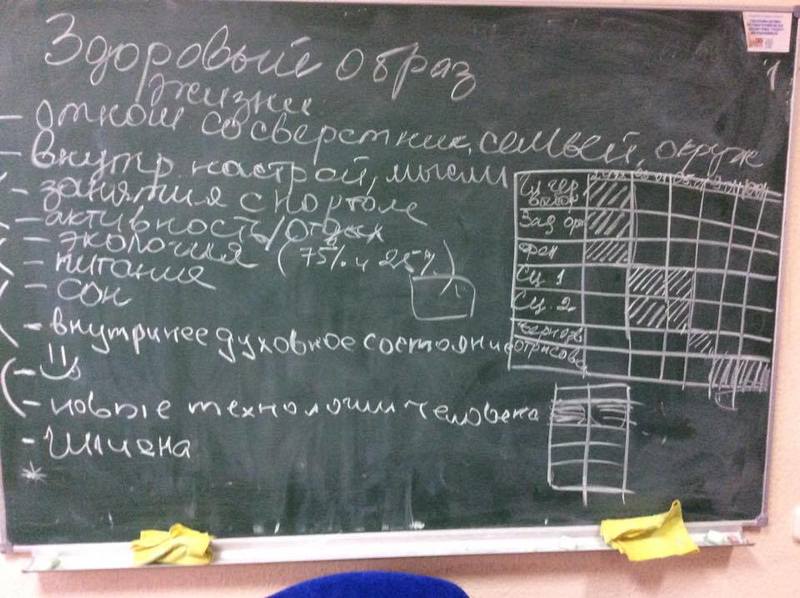 Здоровый образ
жизни
- отнош со сверстник, семьей, окруж
- внутр. настрой, мысли
- занятия спортом
- активность/отдых
- экология (75% и 25%)
- питание
- сон
- внутринее духовное состояние
- новые технологии человека
- Гигиена
*
1
Зад
фен
Сц. 1
Сц. 2